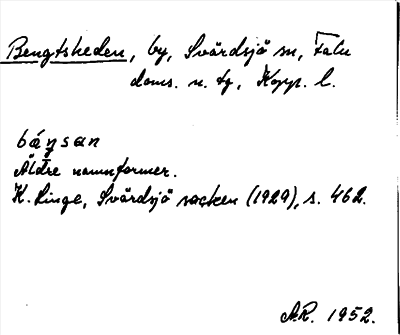 Bengtsheden, by, Svärdsjö sn, Falu
doms. n. tg, Kopp. l.
báŋsan
Äldre namnformer.
K. Linge, Svärdsjö socken (1929), s. 462.
A.R. 1952.